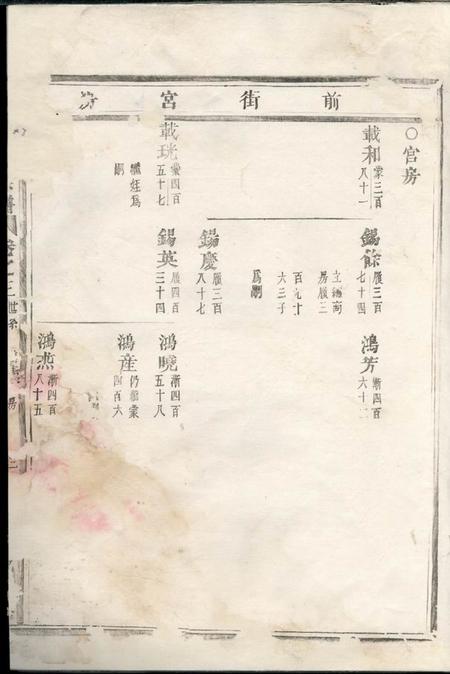 前街宮房
○官房
載和
蒙三百
八十一
載珖
蒙四百
五十七
繼姪為
嗣
錫餘
履三百
七十四
立繼商
房履三
百九十
六三子
為嗣
錫慶
履三百
八十七
錫英
履四百
三十四
鴻芳
漸四百
六十
鴻曉
漸四百
五十八
鴻産
仍歸蒙
四百六
鴻杰
漸四百
八十五
世系